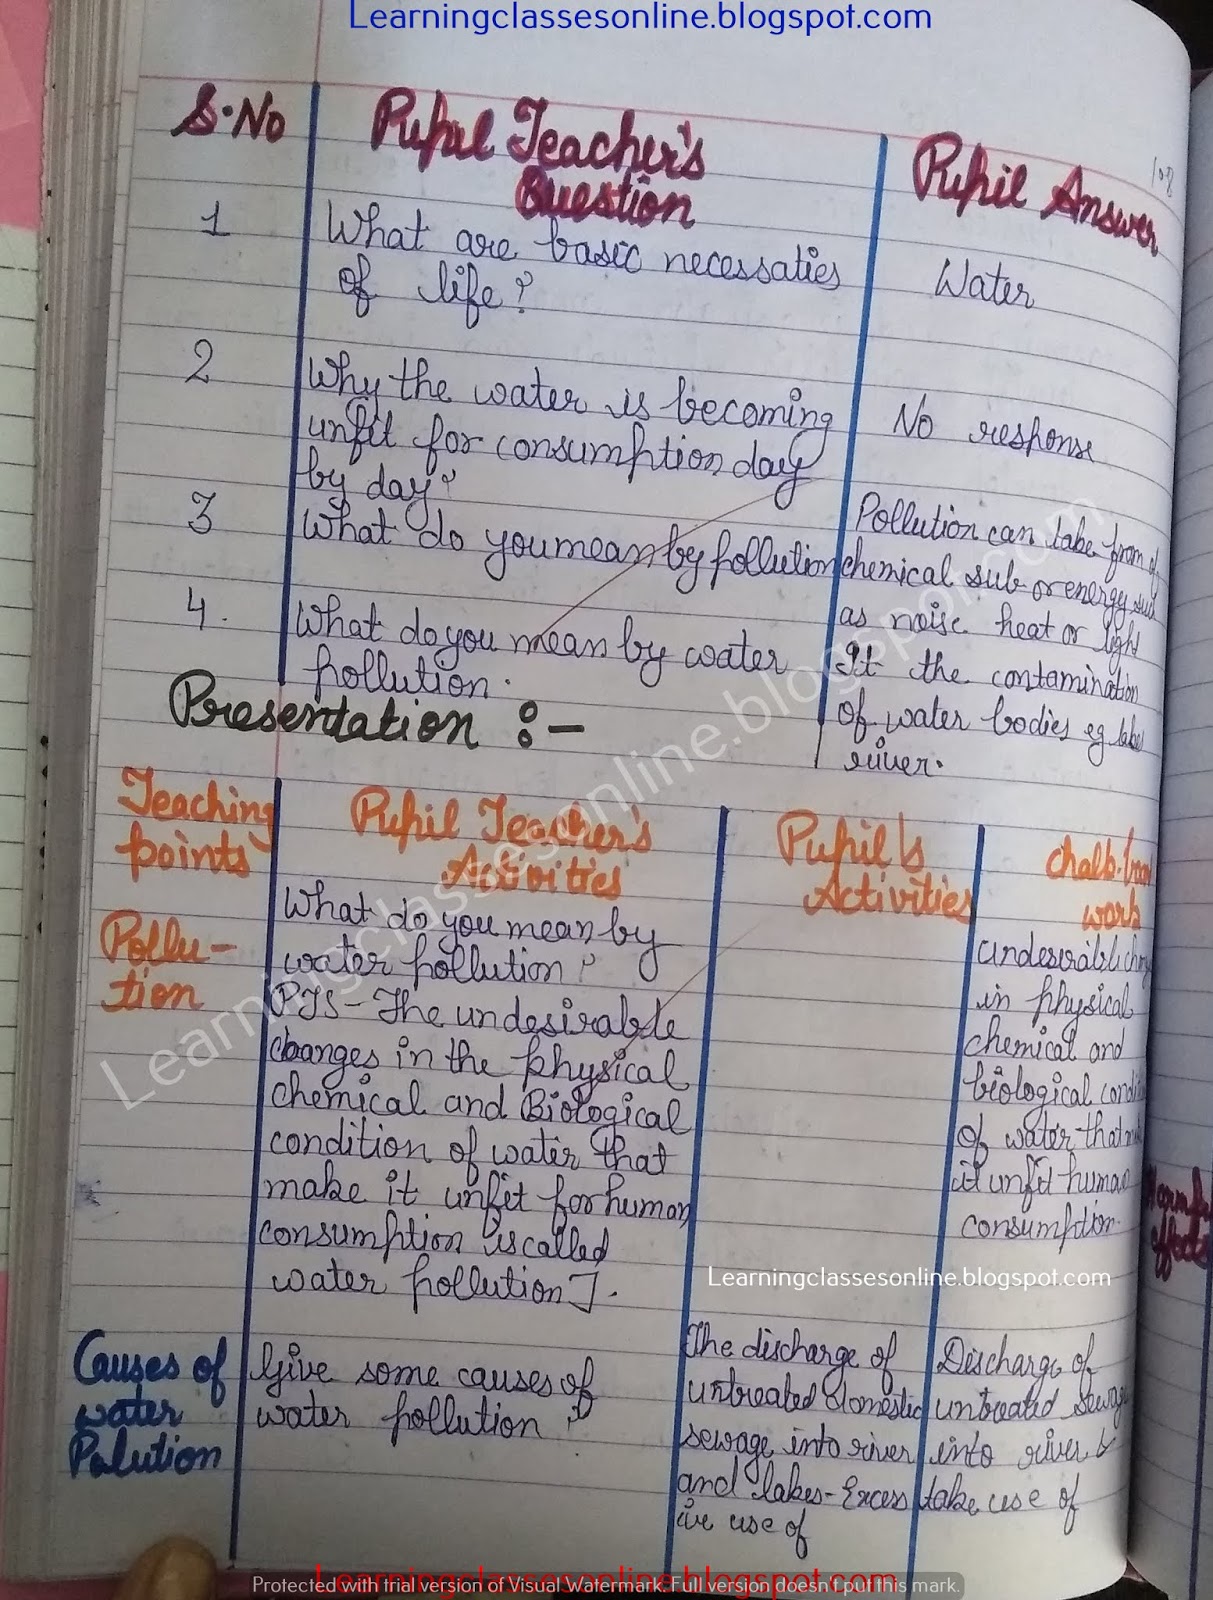 Learningclassesonline.blogspot.com
108
S.No
Pupil Teacher's
Question
Pupil Answer
1
What are basic necessaties
of life?
Water
2
Why the water is becoming
unfit for consumption day
by day?
No response
3
What do you mean by pollution
Pollution can take from of
chemical sub or energy such
as noise heat or light
4.
What do you mean by water
pollution.
It the contamination
of water bodies eg lakes
river.
Presentation :-
Teaching
points
Pupil Teacher's
Activities
Pupil's
Activities
work
Pollu-
tion
What do you mean by
water pollution?
PTS - The undesirable
changes in the physical
chemical and Biological
condition of water that
make it unfit for human
consumption is called
water pollution].
in physical
chemical and
biological
of water that
it unfit human
consumption.
effects
Learningclassesonline.blogspot.com
Learningclassesonline.blogspot.com
Causes of
water
Palution
Give some causes of
water pollution?
The discharge of
untreated domestic
sewage into river
and lakes - Excess
ive use of
Discharge of
untreated sewage
into river &
take use of
Learningclassesonline.blogspot.com
Protected with trial version of Visual Watermark. Full version doesn't put this mark.